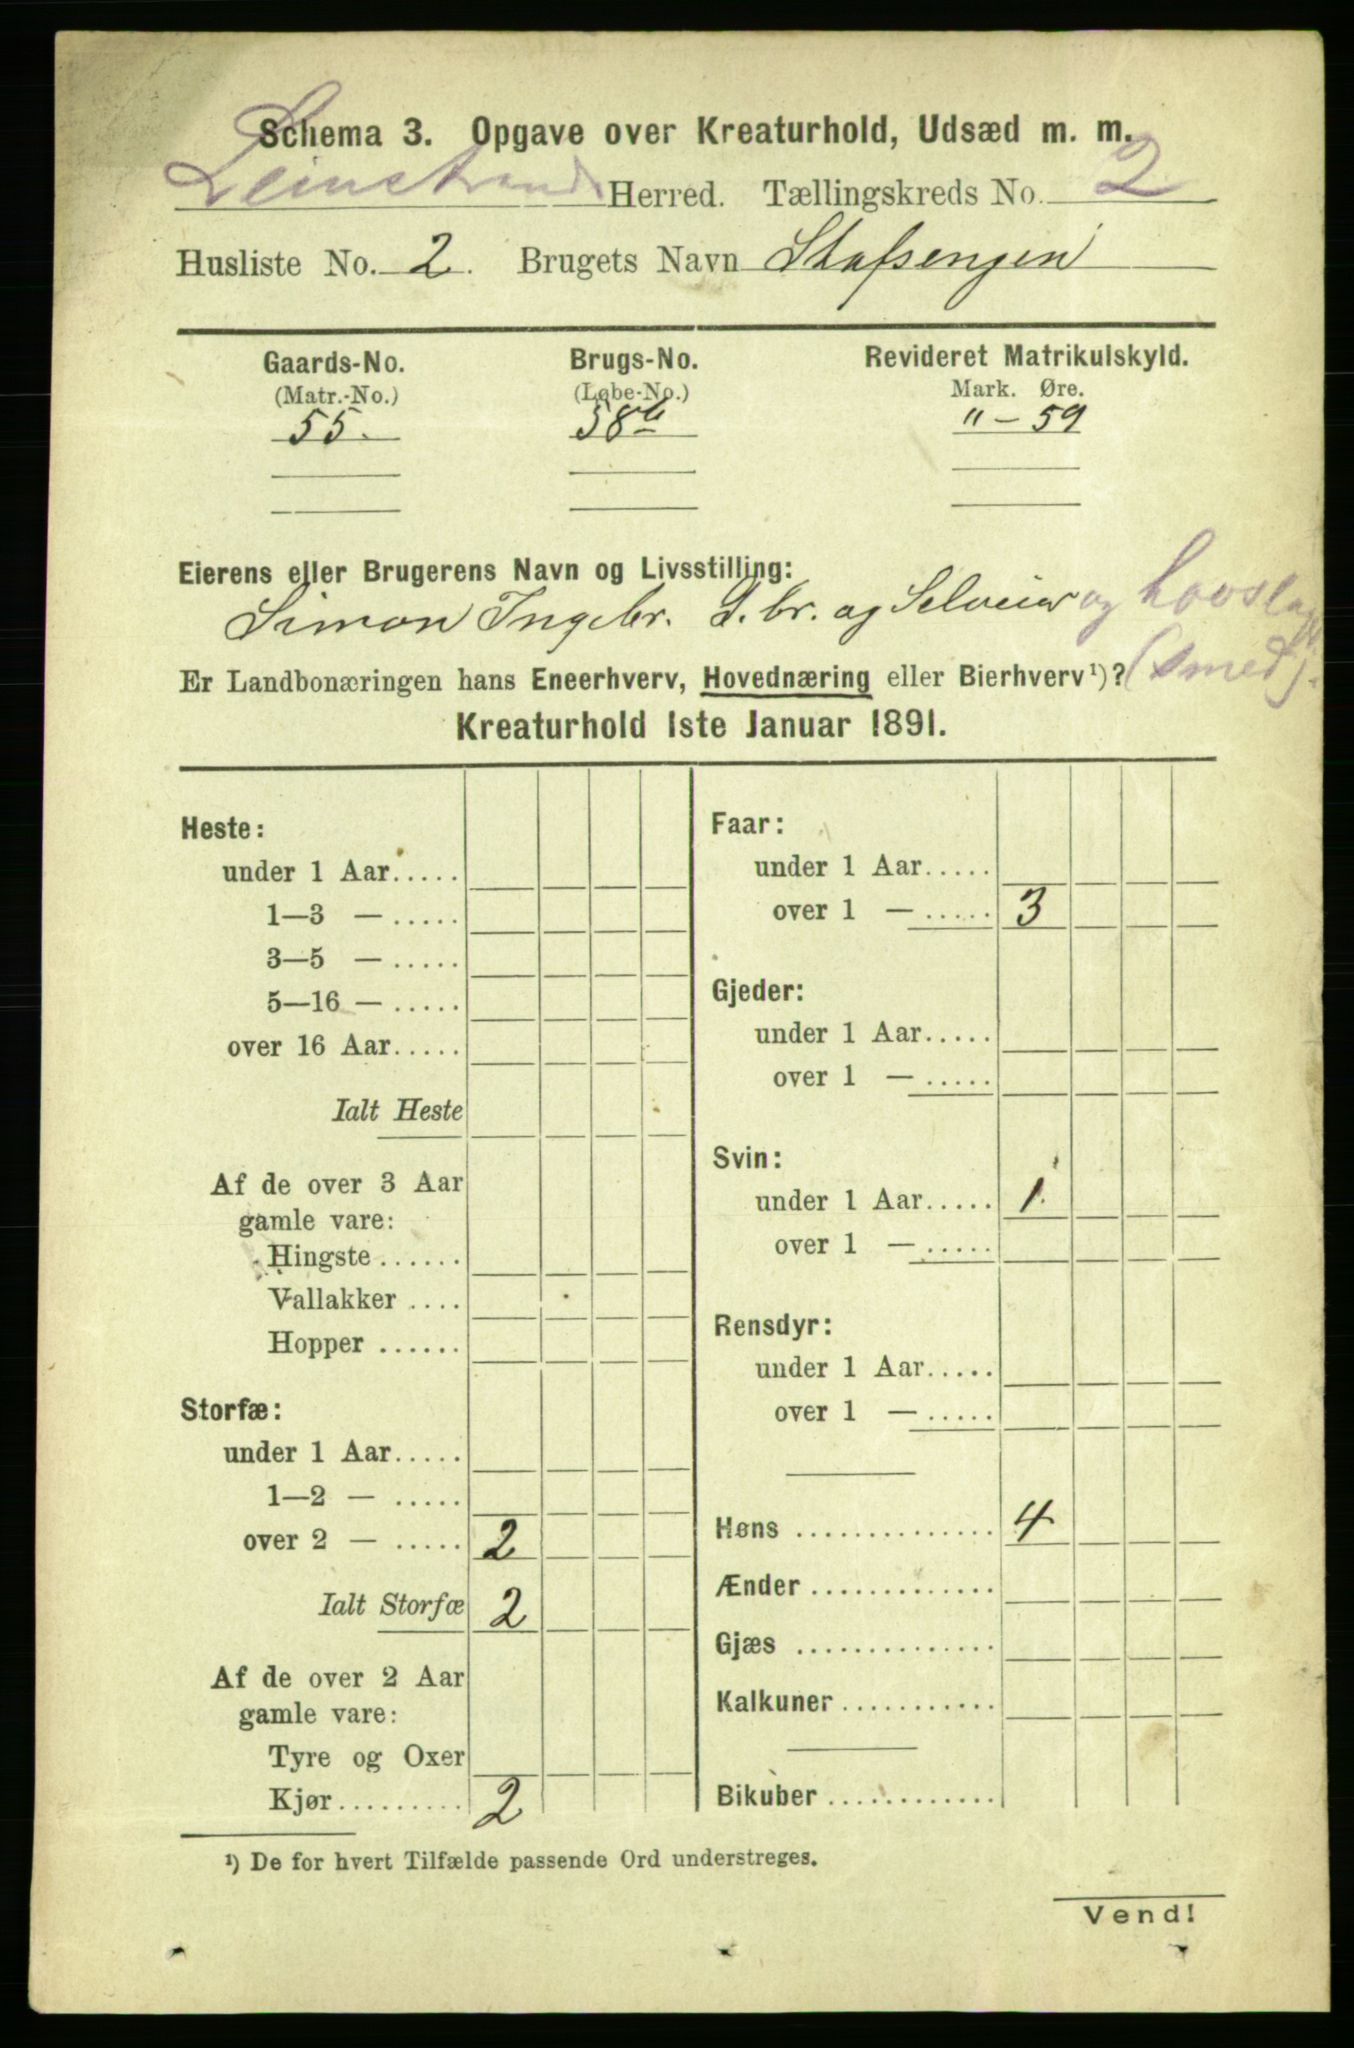 Schema 3. Opgave over Kreaturhold, Udsæd m. m.
Leinstrand Herred. Tællingskreds No. 2
Husliste No. 2. Brugets Navn Stafsengen
Gaards-No. Brugs-No. Revideret Matrikulskyld.
(Matr.-No.) (Løbe-No.) Mark. Øre.
55. 58b " - 59
Eierens eller Brugerens Navn og Livsstilling:
Simon Ingebr. G. br. og Selveier og hovslag
Er Landbonæringen hans Eneerhverv, Hovednæring eller Bierhverv¹)? (smed).
Kreaturhold 1ste Januar 1891.
Heste:
under 1 Aar.....
1—3 — .....
3—5 — .....
5—16 — .....
over 16 Aar.....
Ialt Heste
Af de over 3 Aar
gamle vare:
Hingste......
Vallakker ....
Hopper ......
Storfæ:
under 1 Aar.....
1—2 — .....
over 2 — ..... 2
Ialt Storfæ 2
Af de over 2 Aar
gamle vare:
Tyre og Oxer
Kjør......... 2
Faar:
under 1 Aar.....
over 1 — ..... 3
Gjeder:
under 1 Aar.....
over 1 — .....
Svin:
under 1 Aar..... 1
over 1 — .....
Rensdyr:
under 1 Aar.....
over 1 — .....
Høns .............. 4
Ænder.............
Gjæs ..............
Kalkuner...........
Bikuber............
¹) De for hvert Tilfælde passende Ord understreges.
Vend!